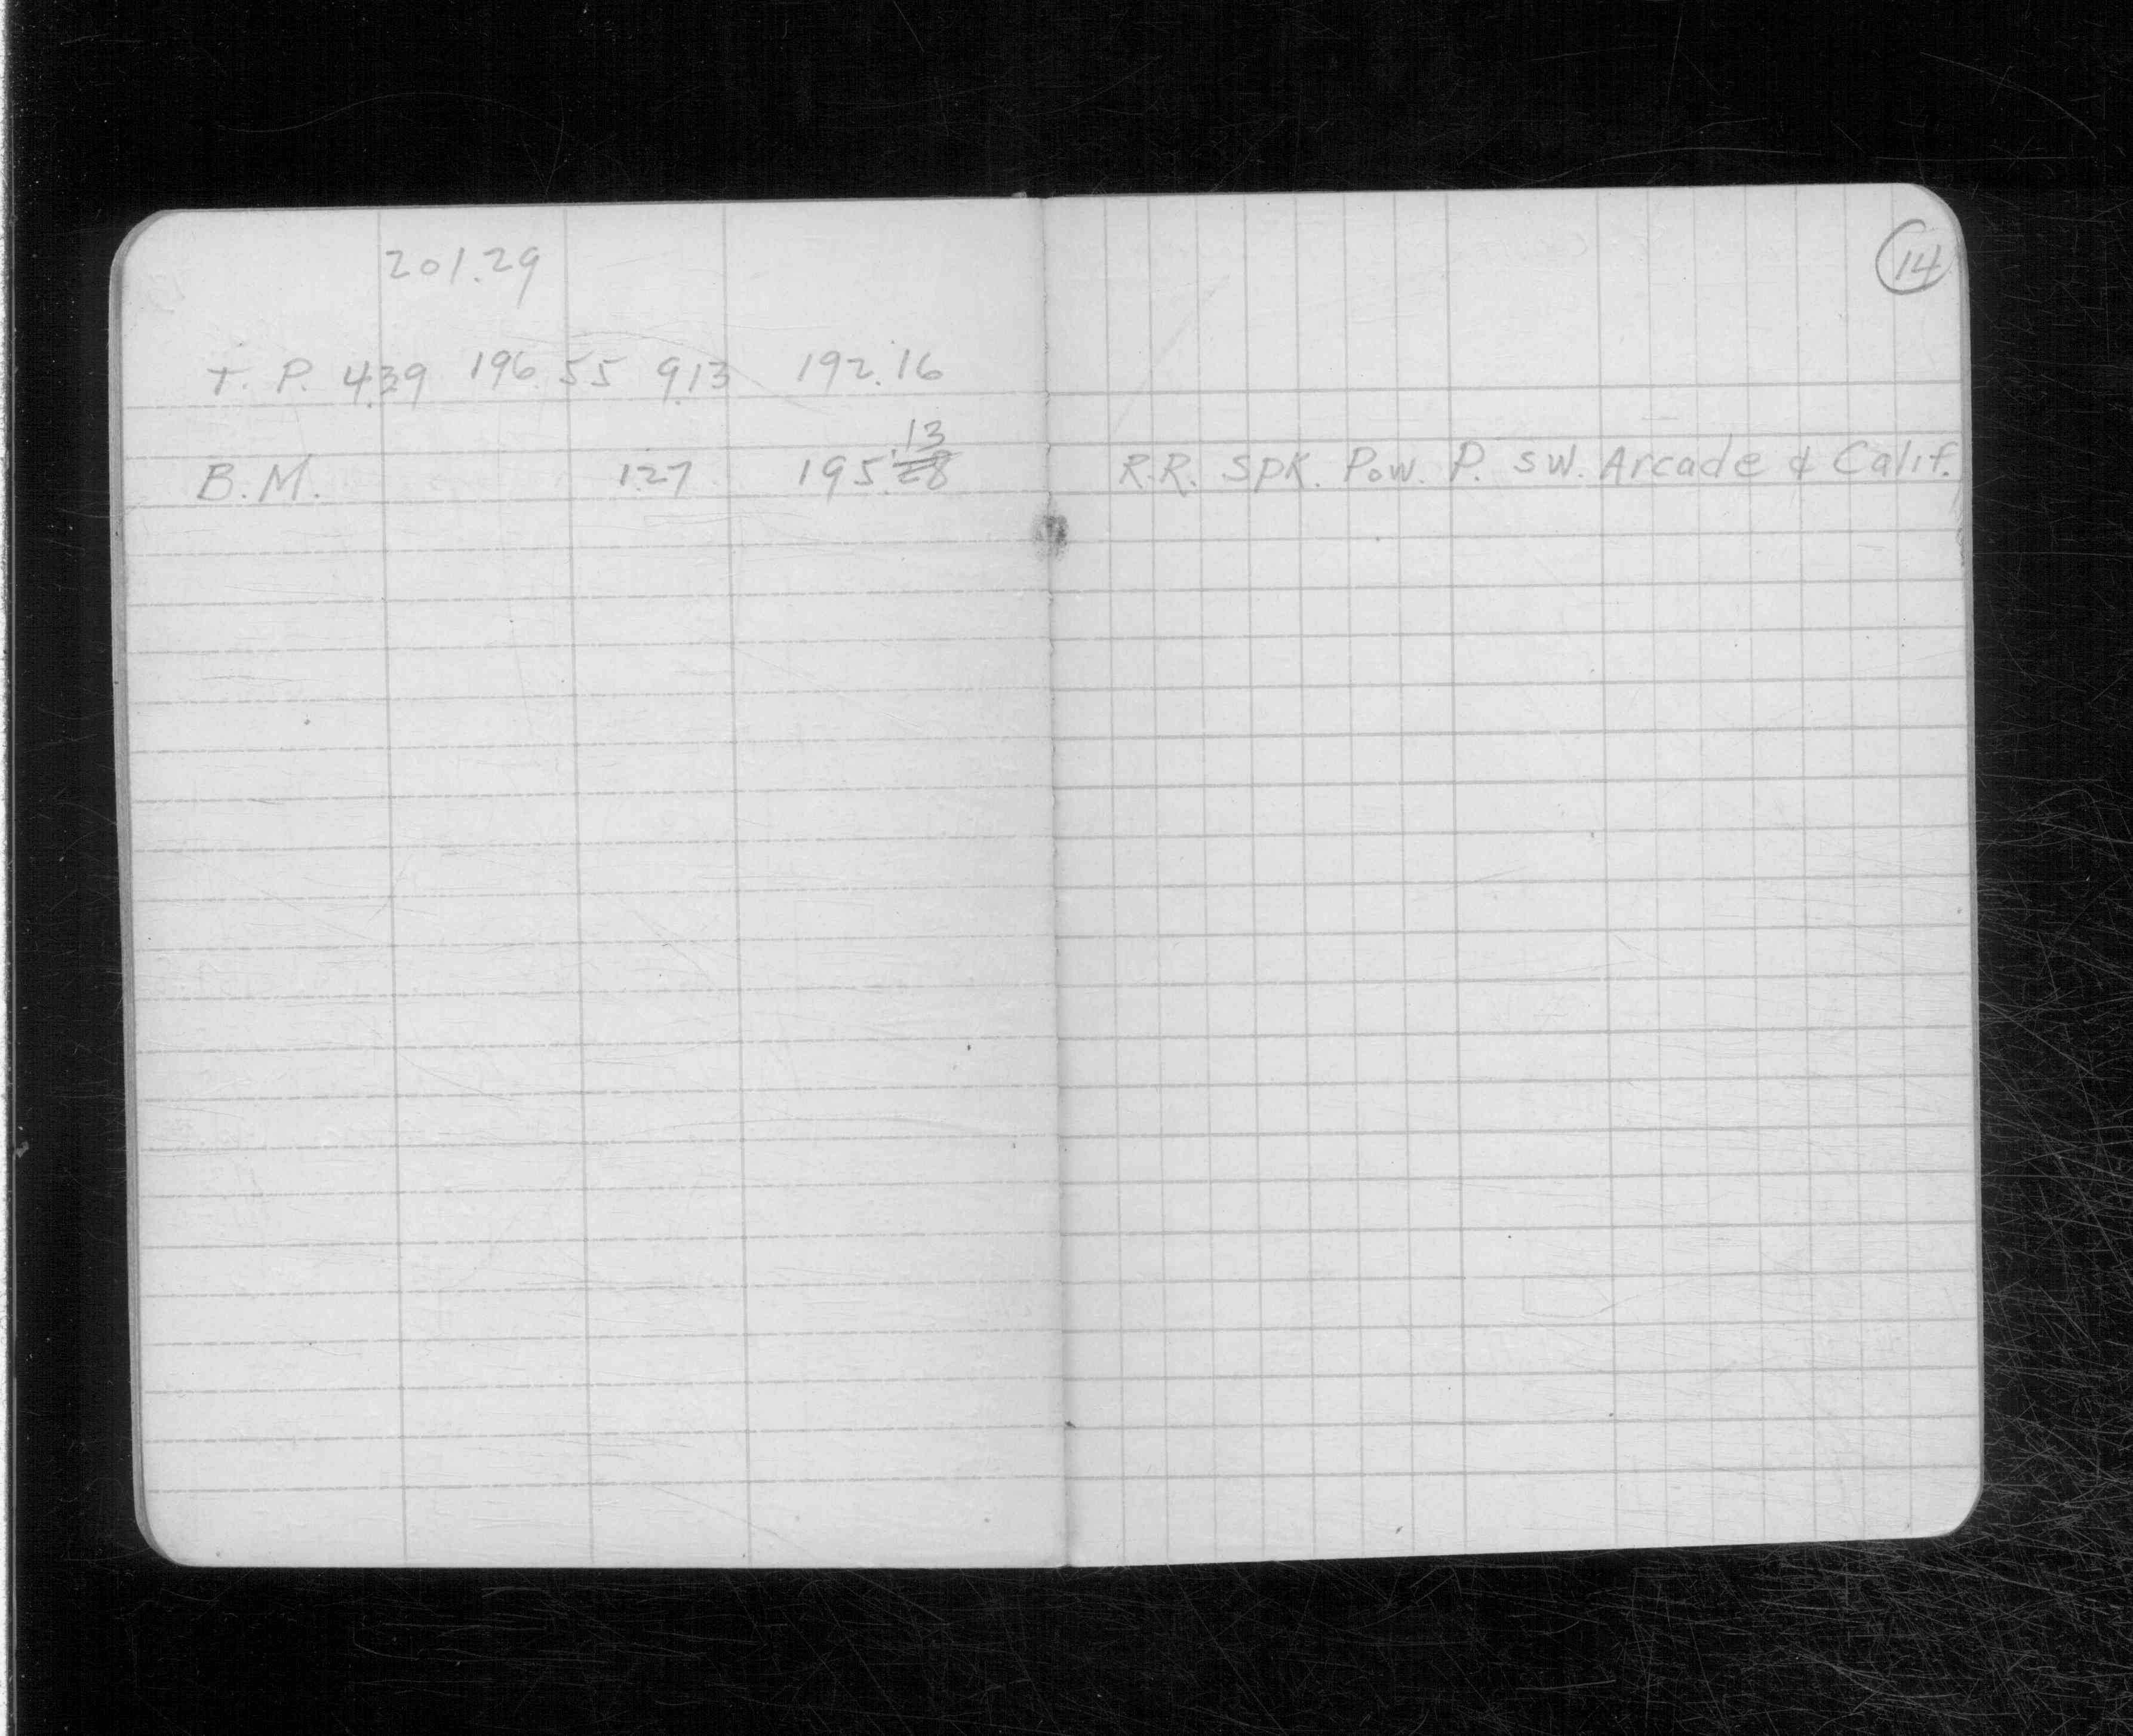 201.29
14
T. P. 4.39 196.55 9.13 192.16
.13
B.M. 1.27 195.28 R.R. SpK. Pow. P. SW. Arcade & Calif.